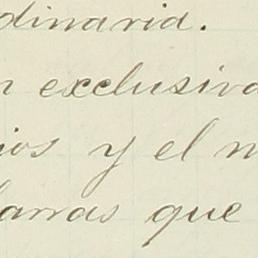 dinaria.
n exclusiva
ios y el n
larras que